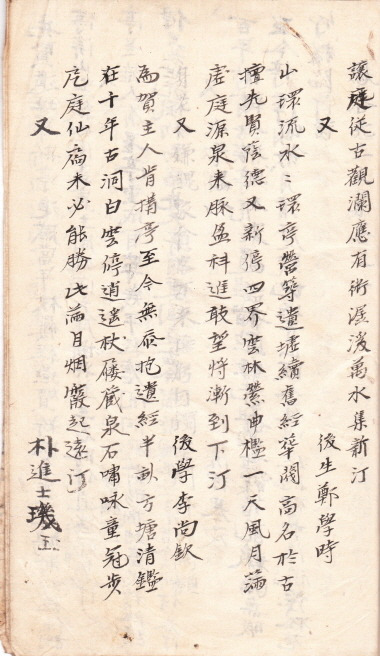 讓庭從古觀瀾應有術渥淩萬水集新汀
後生鄭學時
又
山環流水水環亭營等遺墟續舊經華閥高名於古
擅先賢蔭德又新停四界雲林縈曲檻一天風月滿
虛庭源泉來脉盈科進敢望將漸到下汀
後學李尚欽
又
爲賀主人肯搆亭至今無忝抱遺經半畝方塘清鑑
在十年古洞白雲停逍遙杖屨藏泉石嘯咏童冠步
戹庭仙庿未必能勝此滿目烟霞起遠汀
朴進士璣玉
又